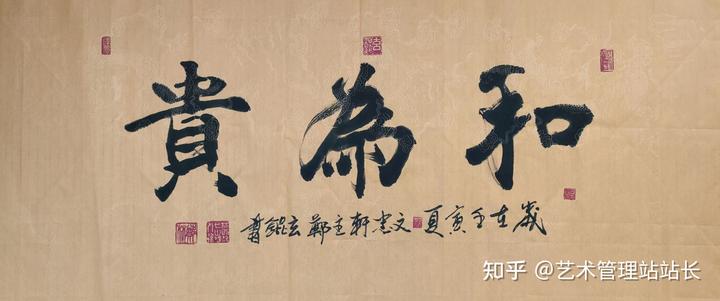 和為貴
歲在壬寅夏 文軒主鄭書
知乎 @艺术管理站站长